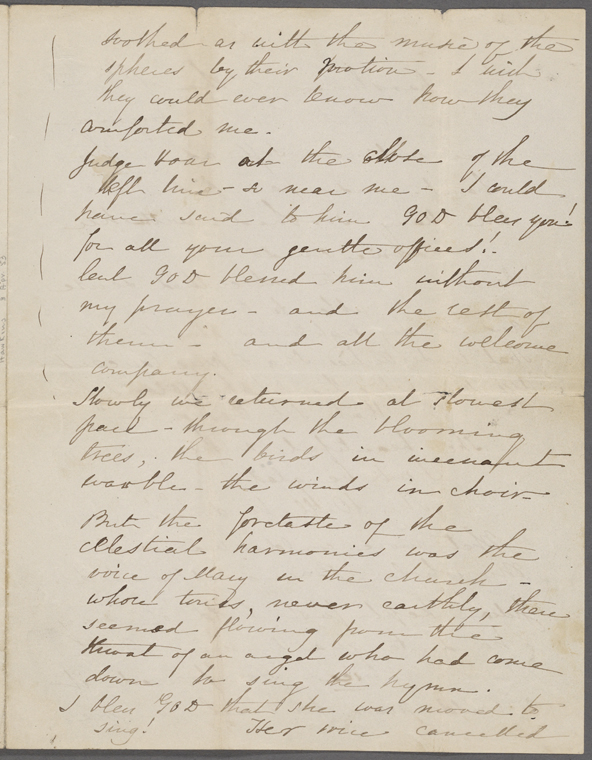 soothed as with the music of the
spheres by their motion - I wish
they could ever know how they
comforted me.
Judge Hoar at the close of the
left line - & near me - I could
have said to him GOD bless you!
for all your gentle offices!
but GOD blessed him without
my prayer - and the rest of
them - and all the welcome
company.
Slowly we returned at slowest
pace - through the blooming
trees, the birds in incessant
warble - the winds in choir -
But the foretaste of the
celestial harmonies was the
voice of Mary in the church -
whose tones, never earthly, then
seemed flowing from the
throat of an angel who had come
down to sing the hymn.
I bless GOD that she was moved to
sing! Her voice cancelled